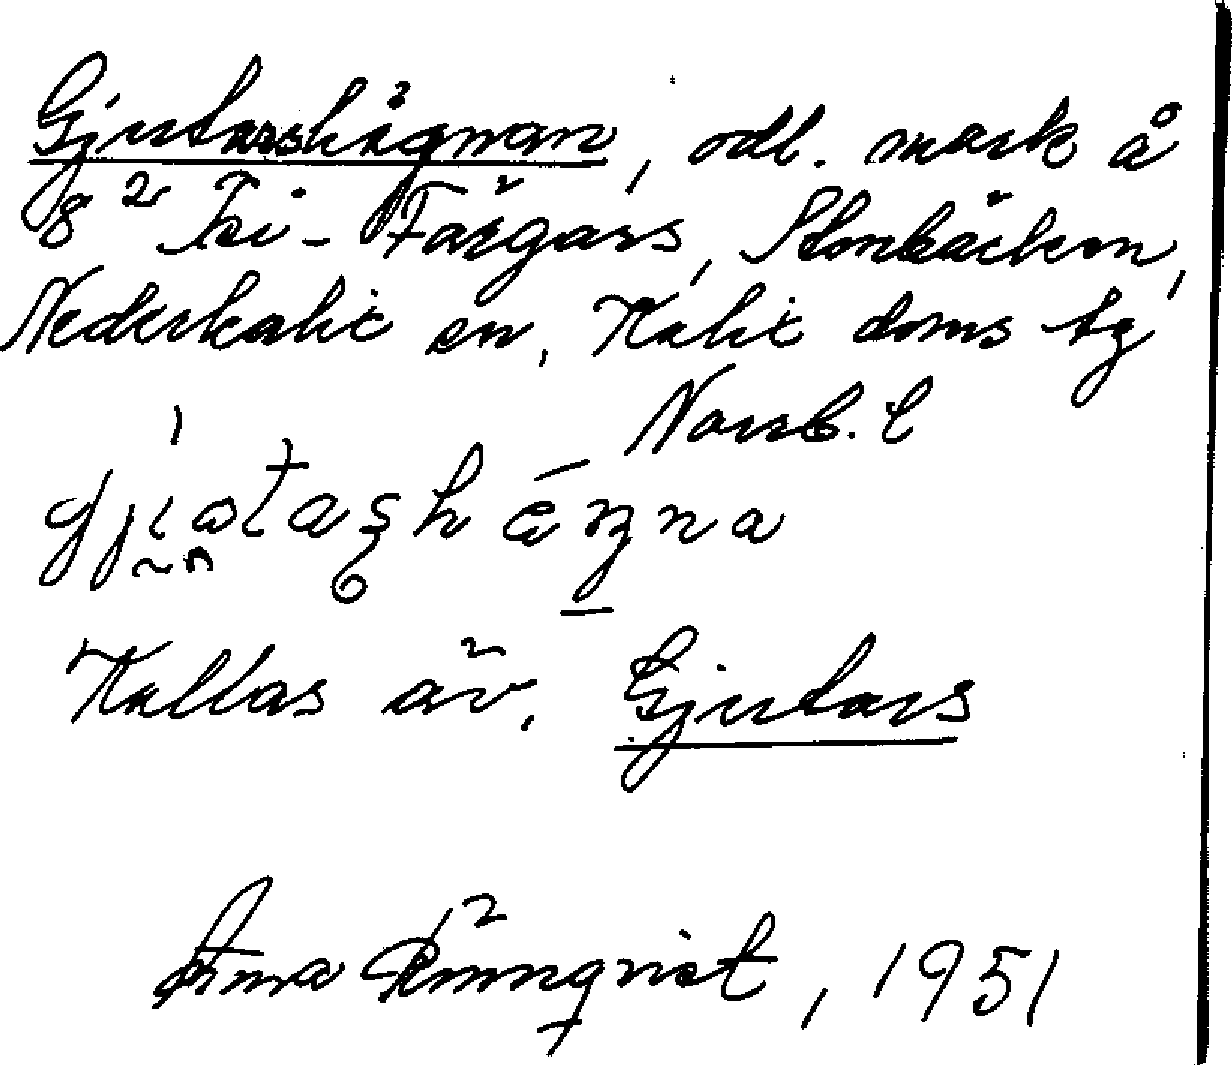 Gjutarshägnan, odl. mark å
8² Tri-Färgars, Storbäcken,
Nederkalix sn, Kalix doms tg
Norrb. l
Kallas äv. Gjutars
Anna Rönnqvist, 1951